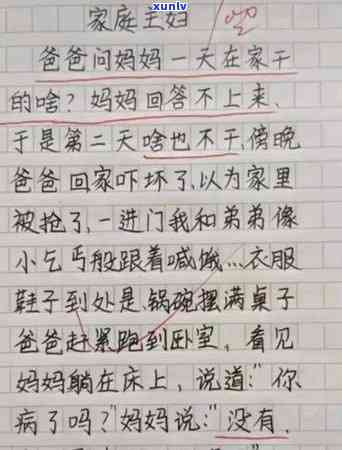 xunlv
www.xunlv.cn
家庭主妇
爸爸问妈妈一天在家干
的啥？妈妈回答不上来、
于是第二天啥也不干，傍晚
爸爸回家吓坏了，以为家里
被抢了，一进门我和弟弟像
小乞丐般跟着喊饿…衣服
鞋子到处是，锅碗摆满桌子
爸爸赶紧跑到卧室，看见
妈妈躺在床上，说道："你
病了吗？"妈妈说："没有、